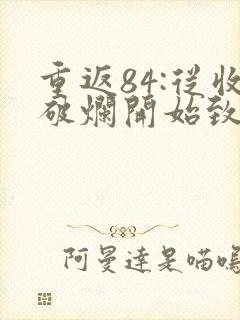 重返84:從收
破爛開始致
阿曼達是喵嗚